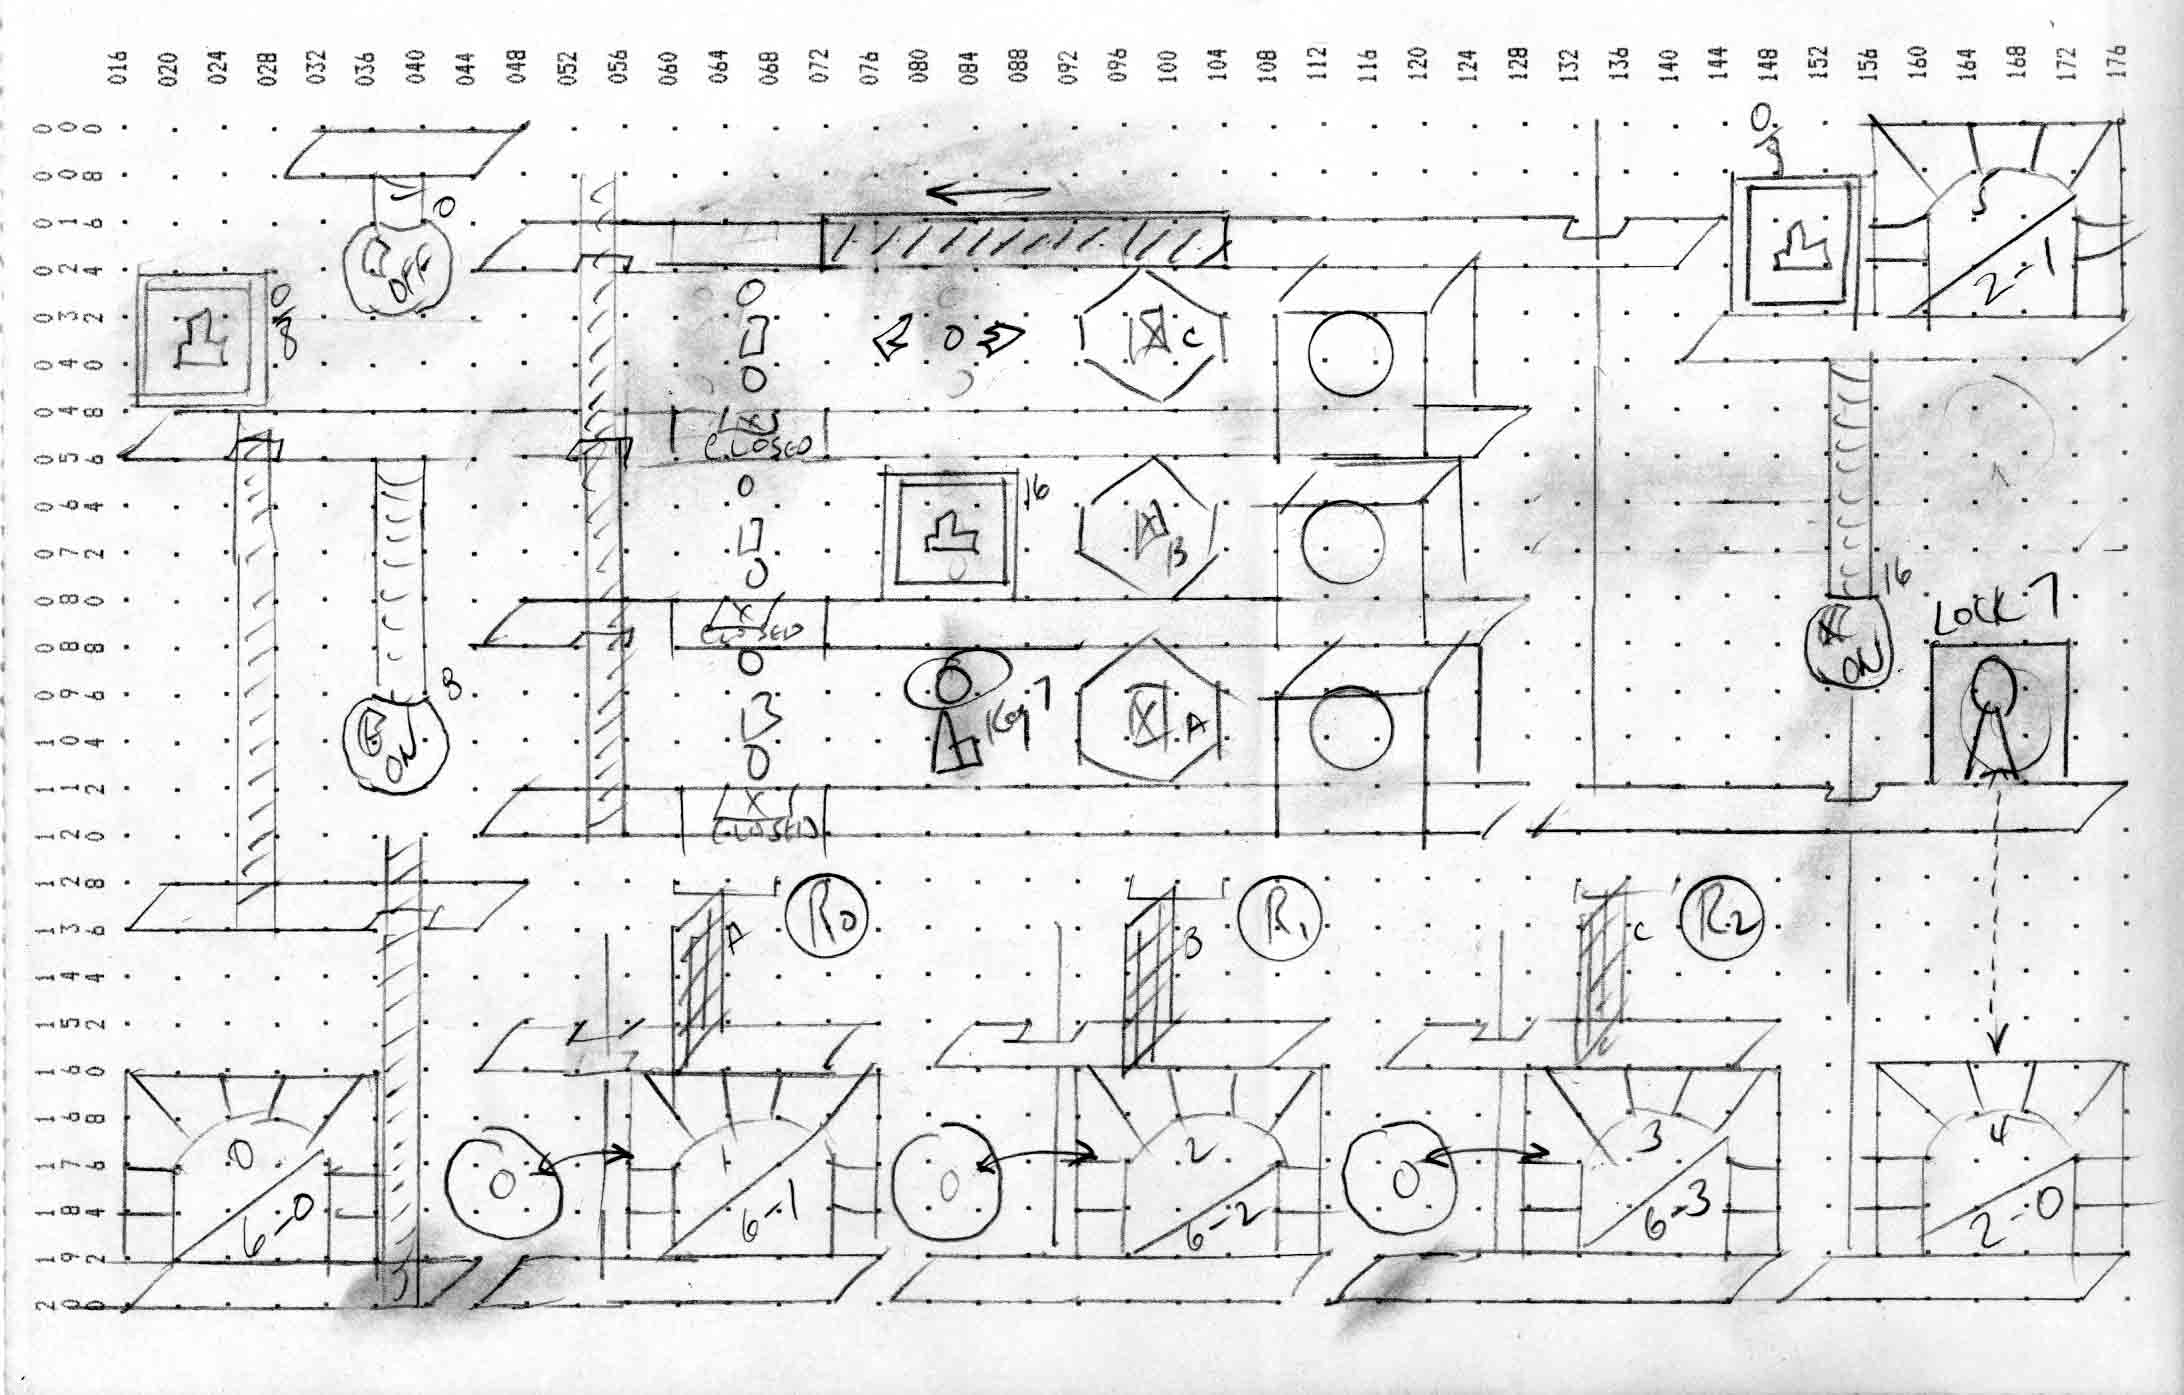 016 020 024 028 032 036 040 044 048 052 056 060 064 068 072 076 080 084 088 092 096 100 104 108 112 116 120 124 128 132 136 140 144 148 152 156 160 164 168 172 176
000
008
016
024
032
040
048
056
064
072
080
088
096
104
112
120
128
136
144
152
160
168
176
184
192
200
0
OFF
0
8
0
5
2-1
0
C
X
CLOSED
16
B
X
CLOSED
16
ON
LOCK 7
Key 7
A
8
ON
X
CLOSED
A
R0
B
R1
C
R2
0
6-0
1
6-1
2
6-2
3
6-3
4
2-0